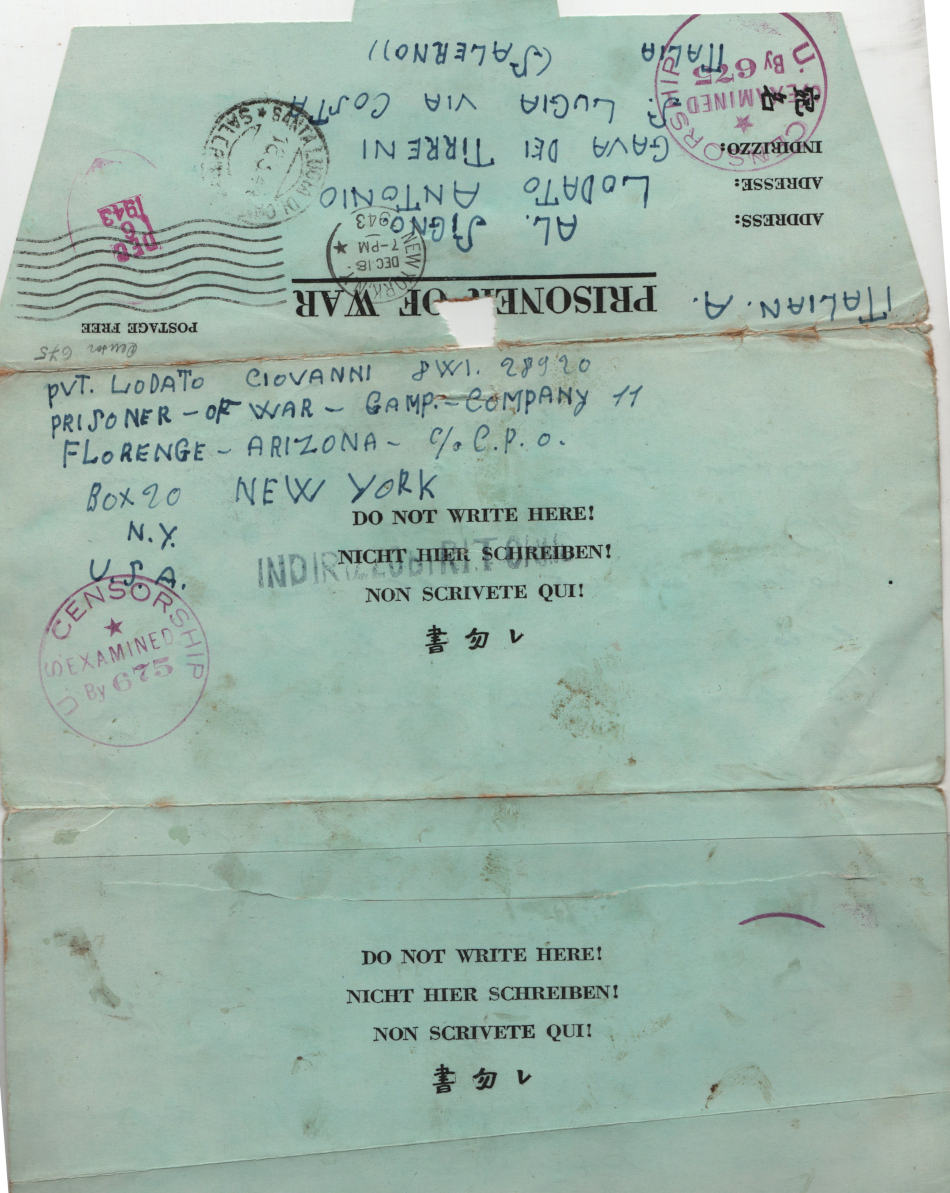 POSTAGE FREE
Censor 675
PRISONER OF WAR
ITALIAN. A.
DEC 6
1943
NEW YORK, N.Y.
DEC 18
7-PM
1943
ADDRESS:
ADRESSE:
INDIRIZZO:
宛名
AL. SIGNO
LODATO ANTONIO
GAVA DEI TIRRENI
S. LUGIA VIA COSTA
ITALIA (SALERNO))
U.S. CENSORSHIP
EXAMINED
By 675
PVT. LODATO GIOVANNI 8WI. 28920
PRISONER-OF WAR-GAMP.-COMPANY 11
FLORENGE-ARIZONA- c/o G.P.O.
BOX 20 NEW YORK
N.Y.
U.S.A.
DO NOT WRITE HERE!
NICHT HIER SCHREIBEN!
NON SCRIVETE QUI!
書勿レ
U.S. CENSORSHIP
EXAMINED
By 675
DO NOT WRITE HERE!
NICHT HIER SCHREIBEN!
NON SCRIVETE QUI!
書勿レ